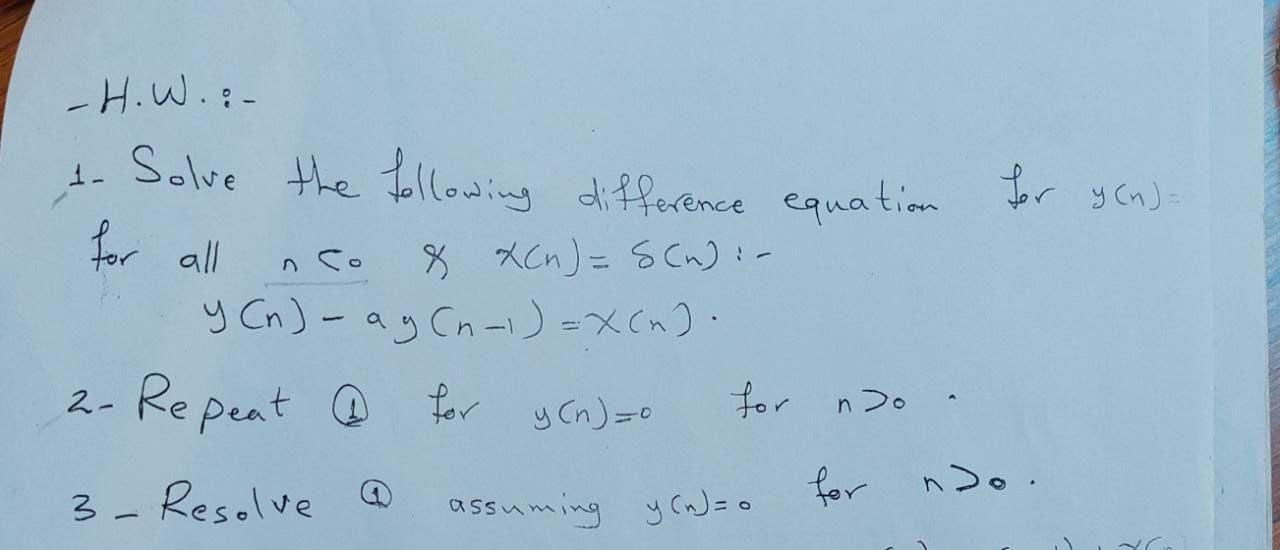 - H.W. :-
1- Solve the following difference equation for y(n)=
for all n<0 & x(n) = δ(n) :-
y(n) - ay(n-1) = x(n).
2- Repeat ① for y(n)=0 for n>0.
3- Resolve ① assuming y(n)=0 for n>0.